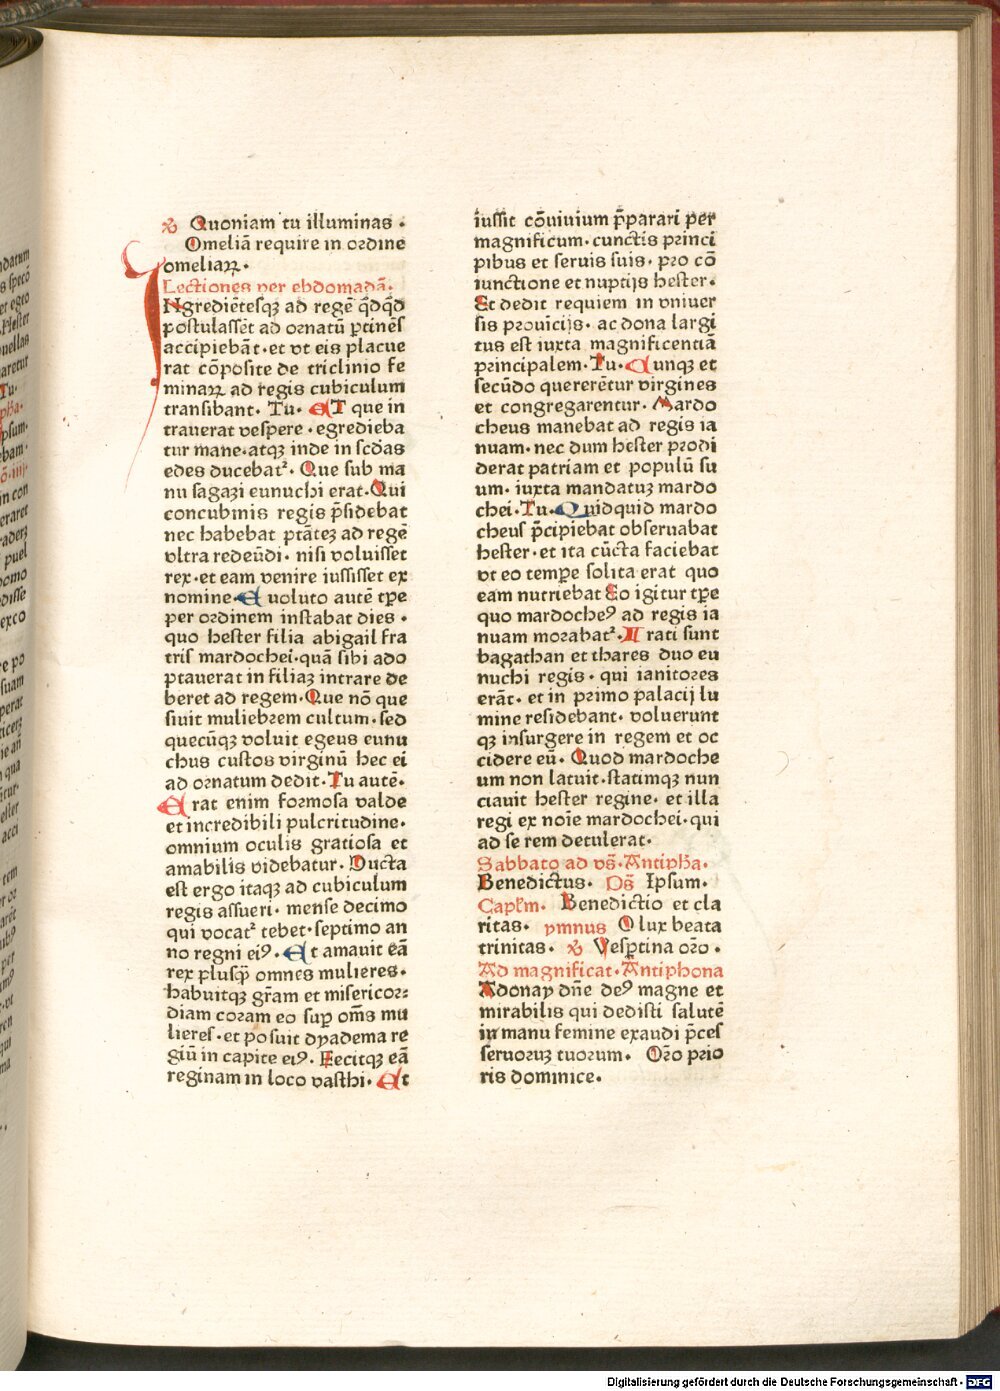 ℟ Quoniam tu illuminas.
Omeliā require in ordine
omeliaꝝ.
Lectiones per ebdomadā.
INgrediētesqꝫ ad regē q̄dq̄d
postulassēt ad ornatū ꝑtinēs
accipiebāt. et vt eis placue
rat cōposite de triclinio fe
minaꝝ ad regis cubiculum
transibant. Tu. ET que in
trauerat vespere. egredieba
tur mane. atqꝫ inde in scdas
edes ducebat᷑. Que sub ma
nu sagazi eunuchi erat. Qui
concubinis regis p̄sidebat
nec habebat ptātēꝫ ad regē
vltra redeūdi. nisi voluisset
rex. et eam venire iussisset ex
nomine. Euoluto autē tꝑe
per ordinem instabat dies.
quo hester filia abigail fra
tris mardochei. quā sibi ado
ptauerat in filiaꝫ intrare de
beret ad regem. Que nō que
siuit muliebrem cultum. sed
quecūqꝫ voluit egeus eunu
chus custos virginū hec ei
ad ornatum dedit. Tu autē.
Erat enim formosa valde
et incredibili pulcritudine.
omnium oculis gratiosa et
amabilis videbatur. Ducta
est ergo itaqꝫ ad cubiculum
regis assueri. mense decimo
qui vocat᷑ tebet. septimo an
no regni eiꝰ. Et amauit eā
rex plusq̄ omnes mulieres.
habuitqꝫ gr̄am et misericor⸗
diam coram eo suꝑ om̄s mu
lieres. et posuit dyadema re
giū in capite eiꝰ. Fecitqꝫ eā
reginam in loco vasthi. Et
iussit cōuiuium p̄parari per
magnificum. cunctis princi
pibus et seruis suis. pro cō
iunctione et nuptijs hester.
Et dedit requiem in vniuer
sis prouīcijs. ac dona largi
tus est iuxta magnificentiā
principalem. Tu. Cunqꝫ et
secūdo quererētur virgines
et congregarentur. Mardo
cheus manebat ad regis ia
nuam. nec dum hester prodi
derat patriam et populū su
um. iuxta mandatuꝫ mardo
chei. Tu. Quidquid mardo
cheus p̄cipiebat obseruabat
hester. et ita cūcta faciebat
vt eo temꝑe solita erat quo
eam nutriebat Eo igitur tꝑe
quo mardocheꝰ ad regis ia
nuam morabat᷑. Irati sunt
bagathan et thares duo eu
nuchi regis. qui ianitores
erāt. et in primo palacij lu
mine residebant. voluerunt
qꝫ insurgere in regem et oc
cidere eū. Quod mardoche
um non latuit. statimqꝫ nun
ciauit hester regine. et illa
regi ex noīe mardochei. qui
ad se rem detulerat.
Sabbato ad vs̄. Antipha.
Benedictus. Ps̄ Ipsum.
Caplm. Benedictio et cla
ritas. ymnus O lux beata
trinitas. ℟ Vesꝑtina oro.
Ad magnificat. Antiphona
Adonay dn̄e deꝰ magne et
mirabilis qui dedisti salutē
in manu femine exaudi p̄ces
seruoruꝫ tuorum. Oro prio
ris dominice.
Digitalisierung gefördert durch die Deutsche Forschungsgemeinschaft - DFG